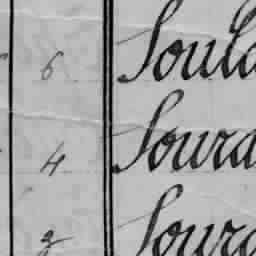 6 Soula
4 Soura
Sour